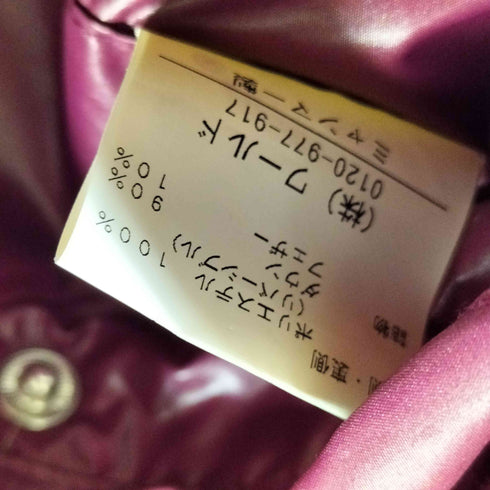 側・裏側
ポリエステル 100%
(リバーシブル)
詰物
ダウン 90%
フェザー 10%
(株) ワールド
0120-977-917
ミャンマー製